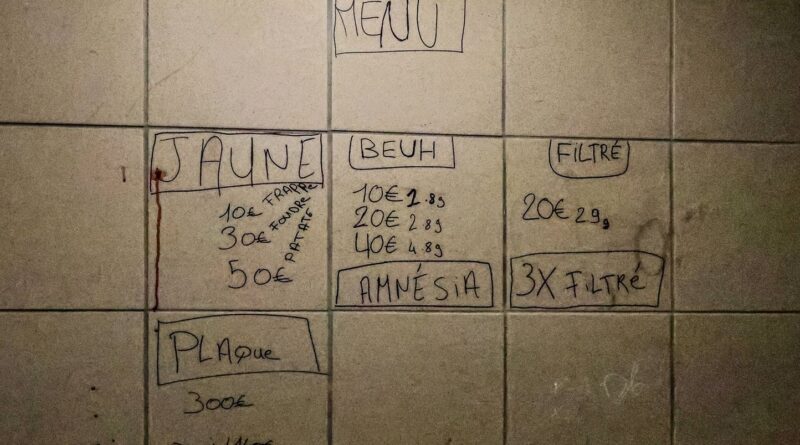 MENU
JAUNE
10€ FRAPPE
30€ FOUDRE
50€ PATATE
BEUH
10€ 1.8g
20€ 2.8g
40€ 4.8g
AMNÉSiA
FiLTRÉ
20€ 2g
3X FiLTRÉ
PLAQUE
300€